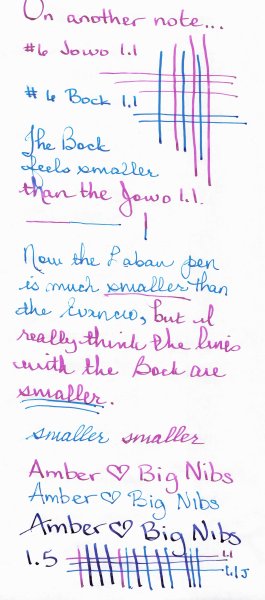 On another note...
#6 Jowo 1.1
#6 Bock 1.1
The Bock
feels smaller
than the Jowo 1.1.
Now the Laban pen
is much smaller than
the Evancio, but I
really think the lines
with the Bock are
smaller.
smaller smaller
Amber ♡ Big Nibs
Amber ♡ Big Nibs
Amber ♡ Big Nibs
1.5
1.1
1.1 J